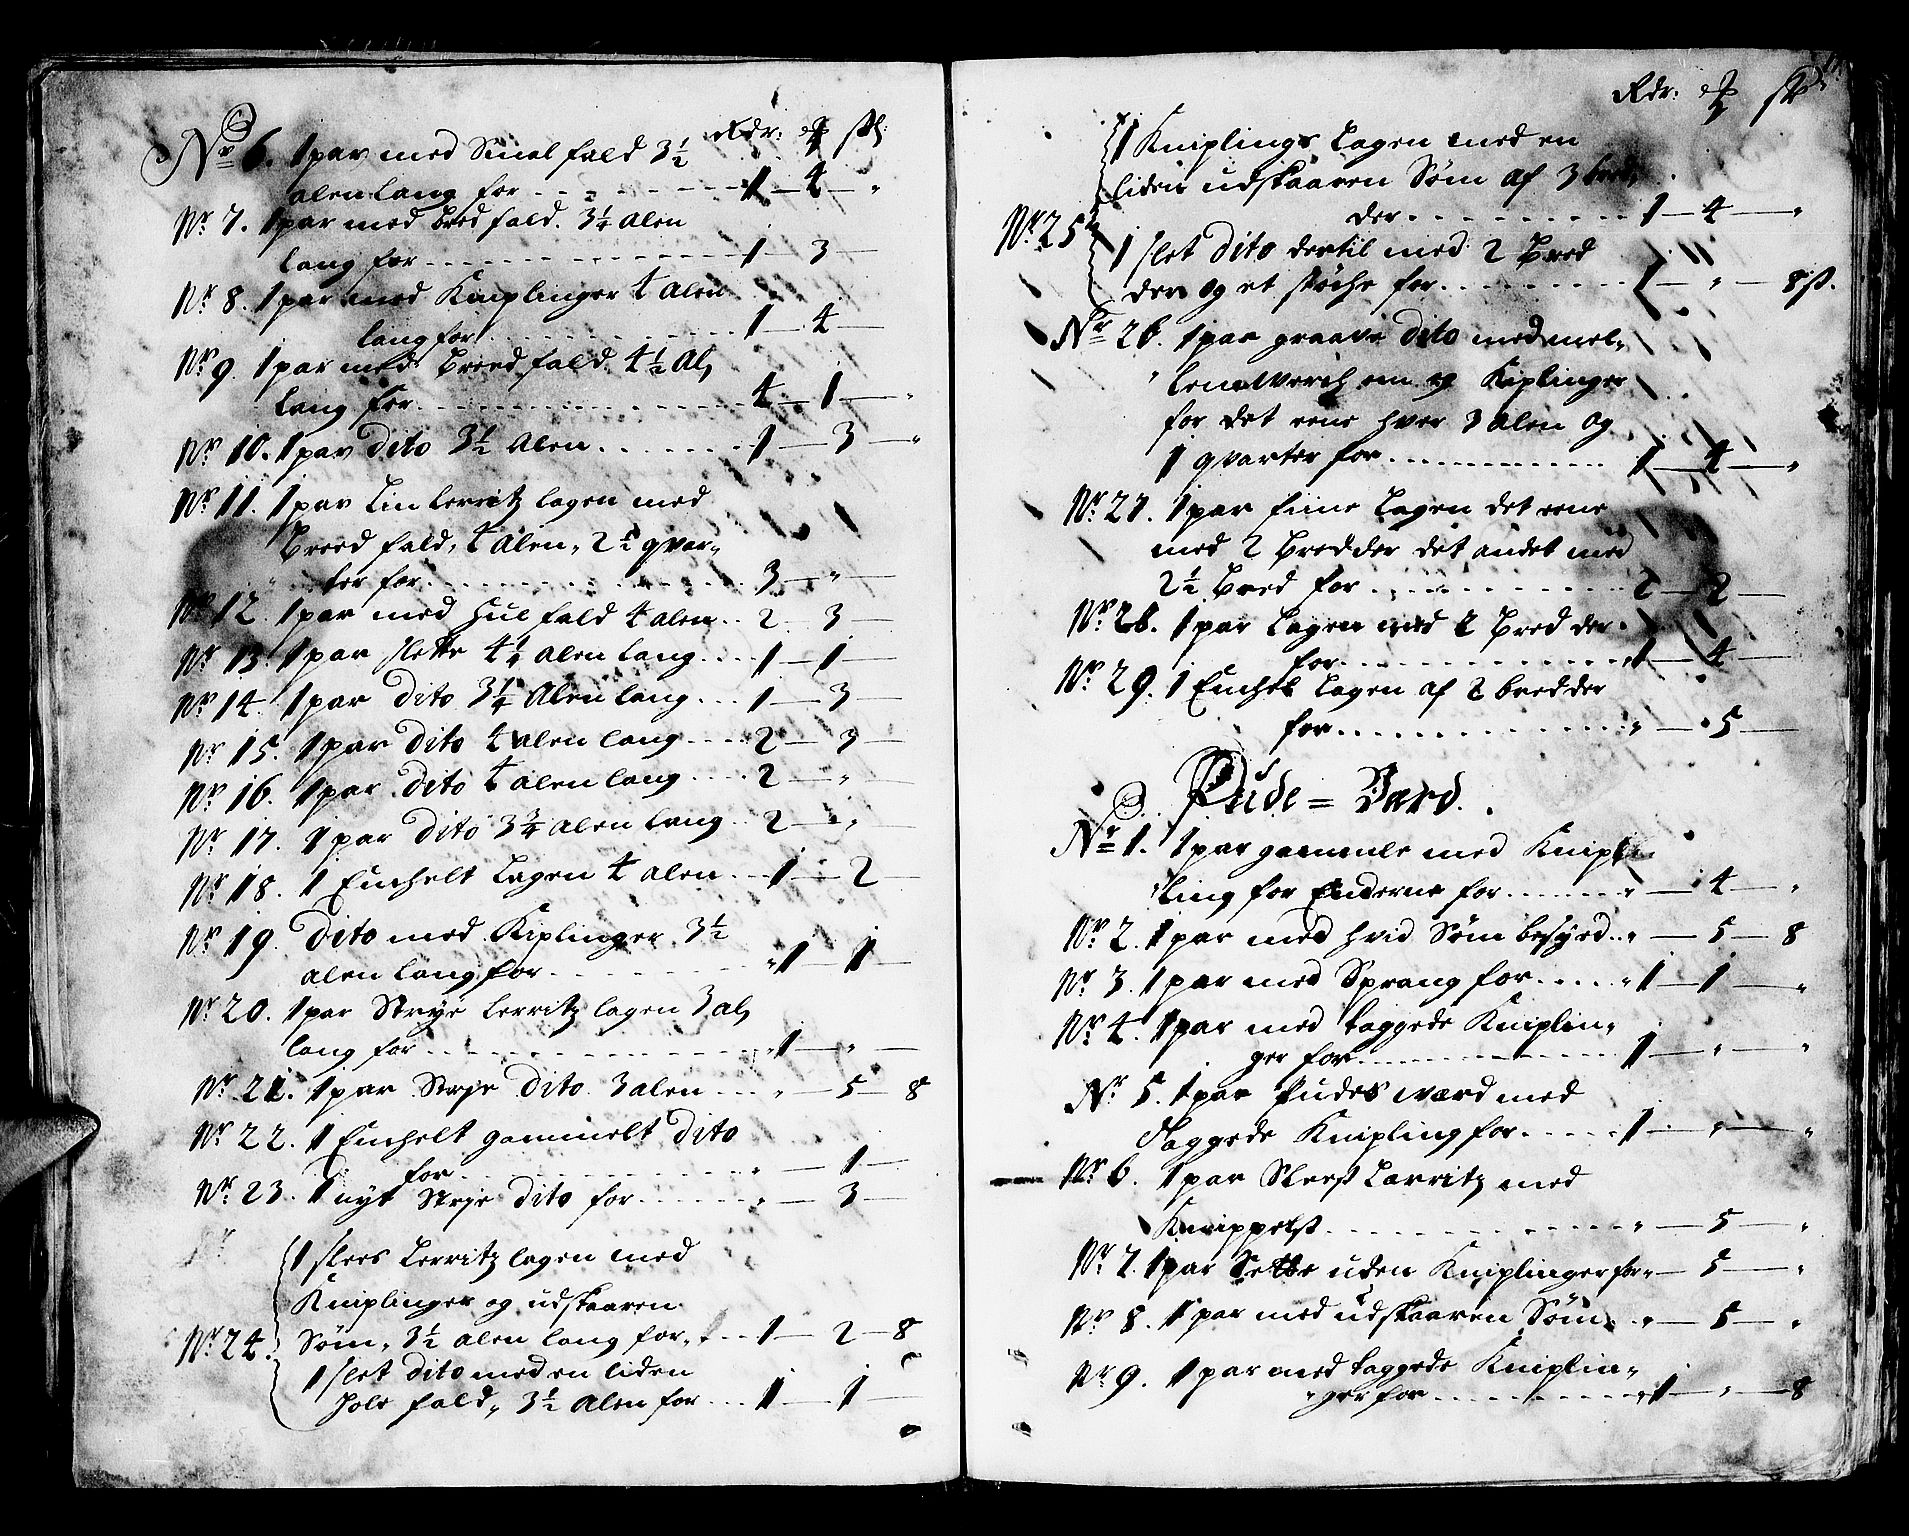 Rdr: ₰ sk:
No 6. 1 par med Smal fald 3½
alen lang for 1 – 4 – "
Nr 7. 1 par med bred fald. 3¼ Alen
lang for 1 – 3 –
Nr 8. 1 par med Kniplinger 4 Alen
lang for 1 – 4 –
Nr 9. 1 par med breed fald. 4½ Al,
lang for 4 – 1 – "
Nr 10. 1 par dito 3½ Alen 1 – 3 – "
Nr 11. 1 par Lin lerritz lagen med
breed fald, 4 Alen, 2½ qvar-
ter for 3 – " –
Nr 12. 1 par med hul fald 4 alen 2 – 3 –
Nr 13. 1 par slette 4¼ Alen lang 1 – 1 –
Nr 14. 1 par dito 3¼ Alen lang 1 – 3 –
Nr 15. 1 par dito 4 alen lang 2 – 3 –
Nr 16. 1 par dito 4 alen lang 2 – "
Nr 17. 1 par dito 3¾ alen lang 2 – "
Nr 18. 1 Enchelt Lagen 4 alen 1 – 2 –
Nr 19. Dito med Kiplinger 3½
alen lang for " 1 – 1 –
Nr 20. 1 par Strye Lerritz lagen 3 al,
lang for " 1 – " –
Nr 21. 1 par Strje dito 3 alen " – 5 – 8
Nr 22. 1 Enchelt gammelt dito
for " – 1 –
Nr 23. 1 nyt Strje dito for " – 3 –
1 slees Lerritz lagen med
Kniplinger og udskaaren
Nr 24. Søm, 3½ alen lang for 1 – 2 – 8
1 slet dito med en liden
hole fald, 3½ Alen for 1 – 1 –
Rdr: ₰ sk
1 Kniplings Lagen med en
liden udskaaren Søm af 3 bred-
der 1 – 4 – "
Nr 25 1 slet dito dertil med 2 bred
der og et støche for 1 – " – 8 s.
Nr 26. 1 par graave dito med mel-
lem Værch om og Kiplinger
for det eene hver 3 Alen og
1 qvarter for 1 – 4 – "
Nr 27. 1 par fiine Lagen det eene
med 2 bredder det andet med
2½ bred for 2 – 2 –
Nr 28. 1 par Lagen med 2 bredder
for " 1 – 4 –
Nr 29. 1 Enchel Lagen af 2 bredder
for " – 5 –
Pude = Værd.
No 1. 1 par gammle med Knip
ling for Enderne for " – 4 – "
Nr 2. 1 par med hvid Søm besyed " – 5 – 8
Nr 3. 1 par med Sprang for " 1 – 1 – "
Nr 4. 1 par med taggede Kniplin-
ger for 1 – " – "
Nr 5. 1 par Pudes værd med
taggede Knipling for 1 – " – "
Nr 6. 1 par Slees Larritz med
Knippelst " – 5 – "
Nr 7. 1 par Sette uden Kniplinger for " – 5 – "
Nr 8. 1 par med udskaaren Søm " – 5 – "
Nr 9. 1 par med taggede Kniplin-
ger for " 1 – " – 8